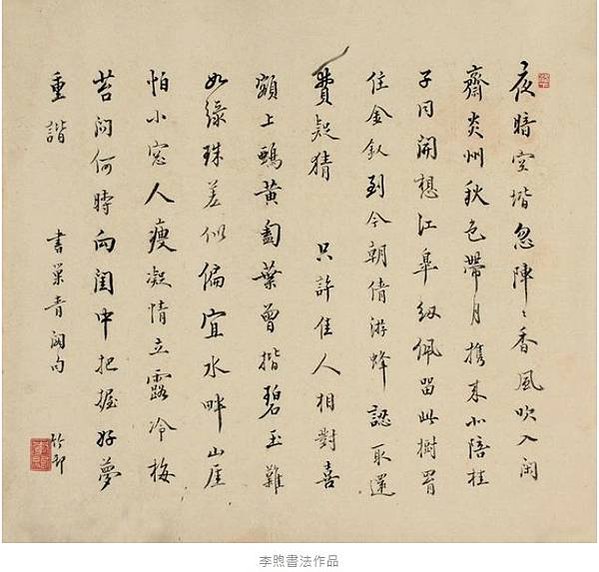 夜暗空堦忽陣〻香風吹入閑
齋炎州秋色帶月携來小陪桂
子同開想江皋紉佩留此樹罥
住金釵到今朝倩游蜂認取還
費疑猜 只許佳人相對喜
額上鵶黃匐葉曾揩碧玉難
如綠珠差似偏宜水畔山厓
怕小窓人瘦凝情立露冷梅
苔問何時向閨中把握好夢
重諧 書巢青閣句
李煦書法作品